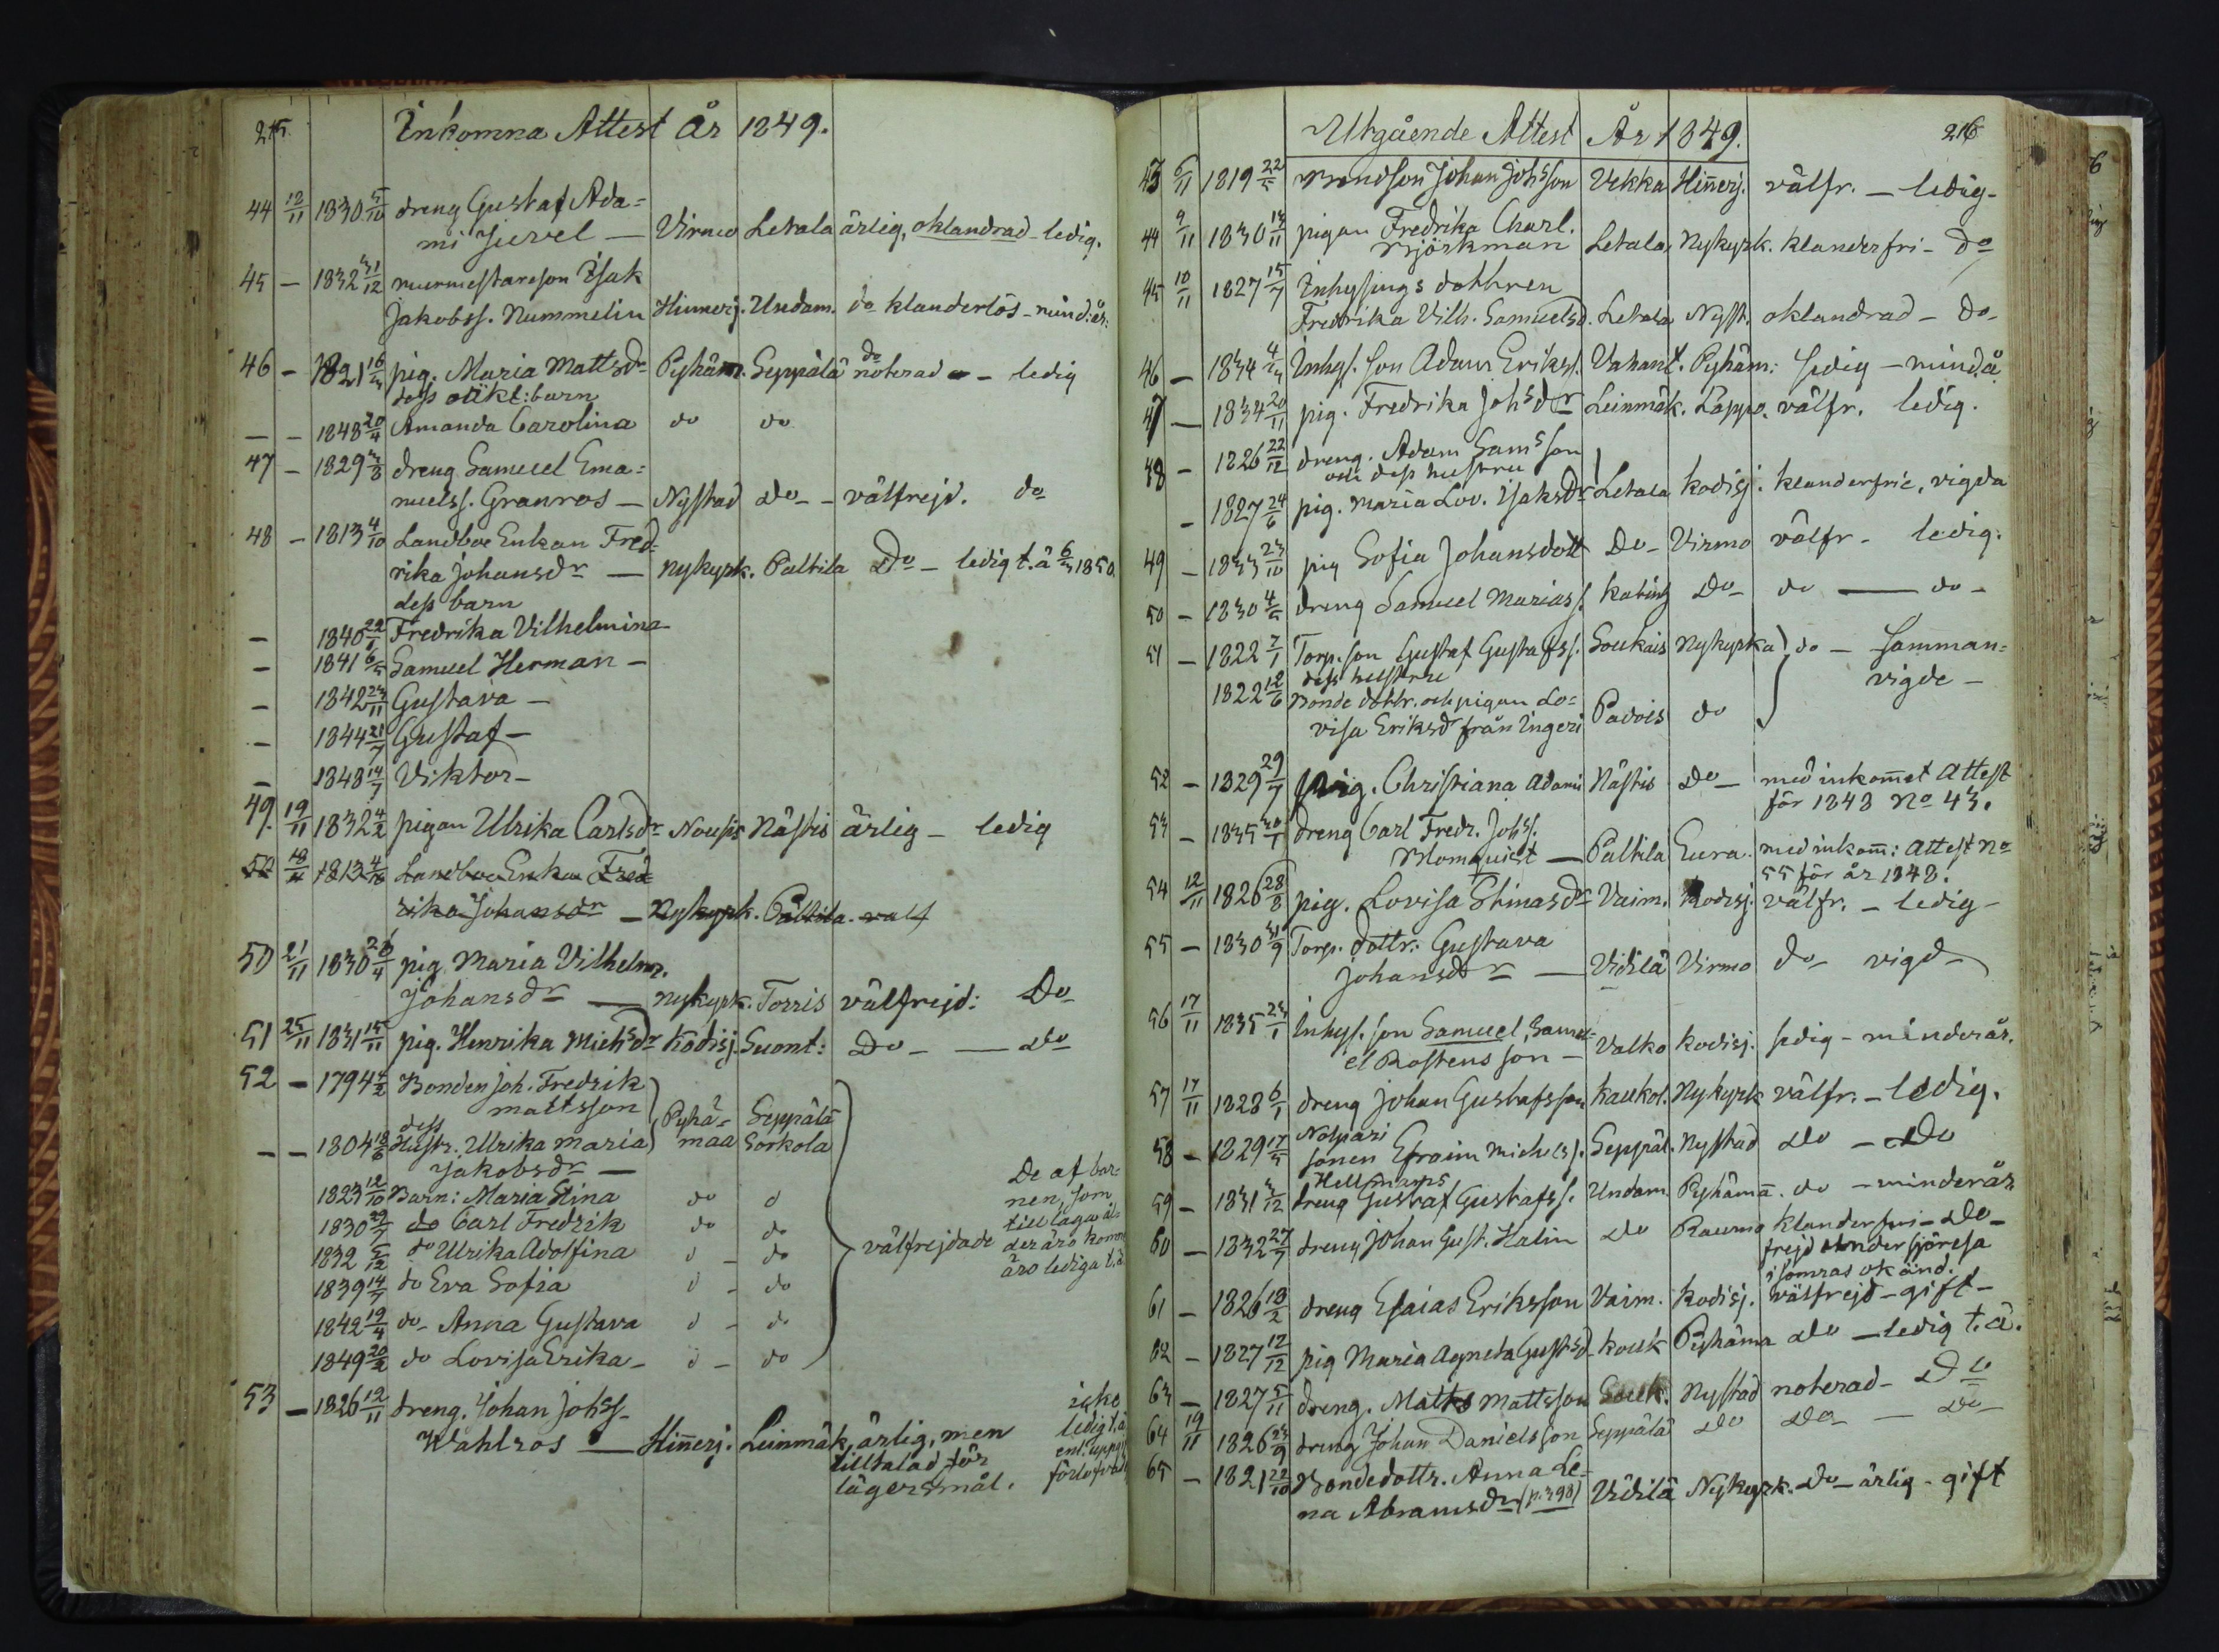 215.
Inkomna Attest år 1849.
44 12/11 1830 5/10 dreng Gustaf Ada=
mi Juvel — Virmo Letala ärlig, oklandrad - ledig.
45 — 1832 31/12 murmestareson Isak
Jakobss. Nummelin Hinnerj. Undam. do klanderlös - mind:år:
46 — 1821 16/3 pig. Maria Mattsdr Pyhäm. Seppälä do noterad - ledig
dess oäkt: barn
— — 1848 20/4 Amanda Carolina do do
47 — 1829 3/8 dreng Samuel Ema=
nuelss. Granros — Nystad do - välfrejd. do
48 — 1813 4/10 Landboe Enkan Fred=
rika Johansdr — Nykyrk. Paltila Do - ledig t.ä 6/3 1850
dess barn
— 1840 22/1 Fredrika Vilhelmina
— 1841 6/5 Samuel Herman —
— 1842 23/11 Gustava —
— 1844 21/7 Gustaf —
— 1848 14/7 Viktor —
49. 19/11 1832 4/2 pigan Ulrika Carlsdr Nousis Nästis ärlig — ledig
50 18/11 1813 4/10 Landboe Enkan Fred
rika Johansdr — Nykyrk. Paltila. valf
50 21/11 1830 28/4 pig. Maria Vilhelm.
Johansdr — Nykyrk. Torris välfrejd: Do
51 25/11 1831 15/11 pig. Henrika Michsdr Kodisj. Suont: Do - — do
52 — 1794 4/2 Bonden Joh. Fredrik
Mattsson
dess
— — 1804 18/6 Hustr. Ulrika Maria Pyhä= maa Seppälä Sorkola
Jakobsdr —
1823 12/10 Barn: Maria Stina do d
1830 29/7 do Carl Fredrik do do
1832 5/12 do Ulrika Adolfina d - do
1839 14/7 do Eva Sofia d - do
1842 19/4 do - Anna Gustava d - do
1849 20/2 do Lovisa Erika - d - do
välfrejdade
De af bar=
nen, som
till laga ål=
der äro komne
äro lediga t.ä
53 — 1826 12/11 dreng. Johan Johss.
Wahlros — Hinnerj. Leinmäk. ärlig, men
tilltalad för
lägersmål.
icke
ledig t.ä
enl. uppgift
förlofvad
Utgående Attest År 1849.
216
43 6/11 1819 22/5 Bondson Johan Johsson Vekka Hinnerj. välfr. — ledig -
44 9/11 1830 13/11 pigan Fredrika Charl.
Björkman Letala, Nykyrk. klanderfri - Do
45 10/11 1827 15/7 Inhysings dottren
Fredrika Vilh. Samuelsd. Letala Nyst. oklandrad - do -
46 — 1834 4/3 Inhys. son Adam Erikss. Vahant. Pyhäm: sedig - mind.å
47 — 1834 20/11 pig. Fredrika Johsdr Leinmäk. Lappo. välfr. ledig.
48 — 1826 22/12 dreng. Adam Samsson
och dess hustru
— 1827 24/6 pig. Maria Lov. Isaksdr Letala Kodisj. klanderfrie, vigda
49 — 1833 23/10 pig Sofia Johansdott Do - Virmo välfr - ledig.
50 — 1830 4/5 dreng Samuel Mariass. Do - do — do -
51 — 1822 7/1 Torp.son Gustaf Gustafss. Soukais Nykyrka do - samman=
dess hustru vigde —
1822 12/6 Bonde dottr. och pigan Lo=
visa Eriksdr från Ingeri Padois do
52 — 1829 29/7 pig. Christiana Adami Nästis do — med inkomet Attest
för 1848 No 43.
53 — 1835 30/1 dreng Carl Fredr. Johss.
Blomquist — Paltila Eura. med inkom: Attest No
55 för år 1848.
54 12/11 1826 28/8 pig. Lovisa Stinasdr Vaim. Kodisj. välfr. - ledig -
55 — 1830 31/9 Torp. dottr. Gustava
Johansdr — Vidilä Virmo do - vigd -
56 17/11 1835 23/1 Inhys. son Samuel, Samu=
el Rostens son — Valko Kodisj. sedig - minderår.
57 17/11 1828 6/1 dreng Johan Gustafsson Kaukol. Nykyrk välfr. - ledig.
58 — 1829 17/5 sonen Efraim Michelss. Seppäl. Nystad do - do
Hellmans
59 — 1831 3/12 dreng Gustaf Gustafss. Undam. Pyhäma. do - minderår
60 — 1832 27/7 dreng Johan Gust. Halin do Raumo klanderfri - do -
frejd under sjöresa
i somras okänd.
61 — 1826 18/2 dreng Esaias Eriksson Vaim. Kodisj. välfrejd - gift -
62 — 1827 12/12 pig Maria Agneta Gustsd. Kouk Pyhäma do - ledig t.ä.
63 — 1827 5/11 dreng. Matts Mattsson Nystad noterad - Do
64 19/11 1826 23/9 dreng Johan Danielsson Seppälä do do - — do -
65 — 1821 22/10 Bondedottr. Anna Le=
na Abramsdr (p. 398) Vidilä Nykyrk. do - ärlig - gift